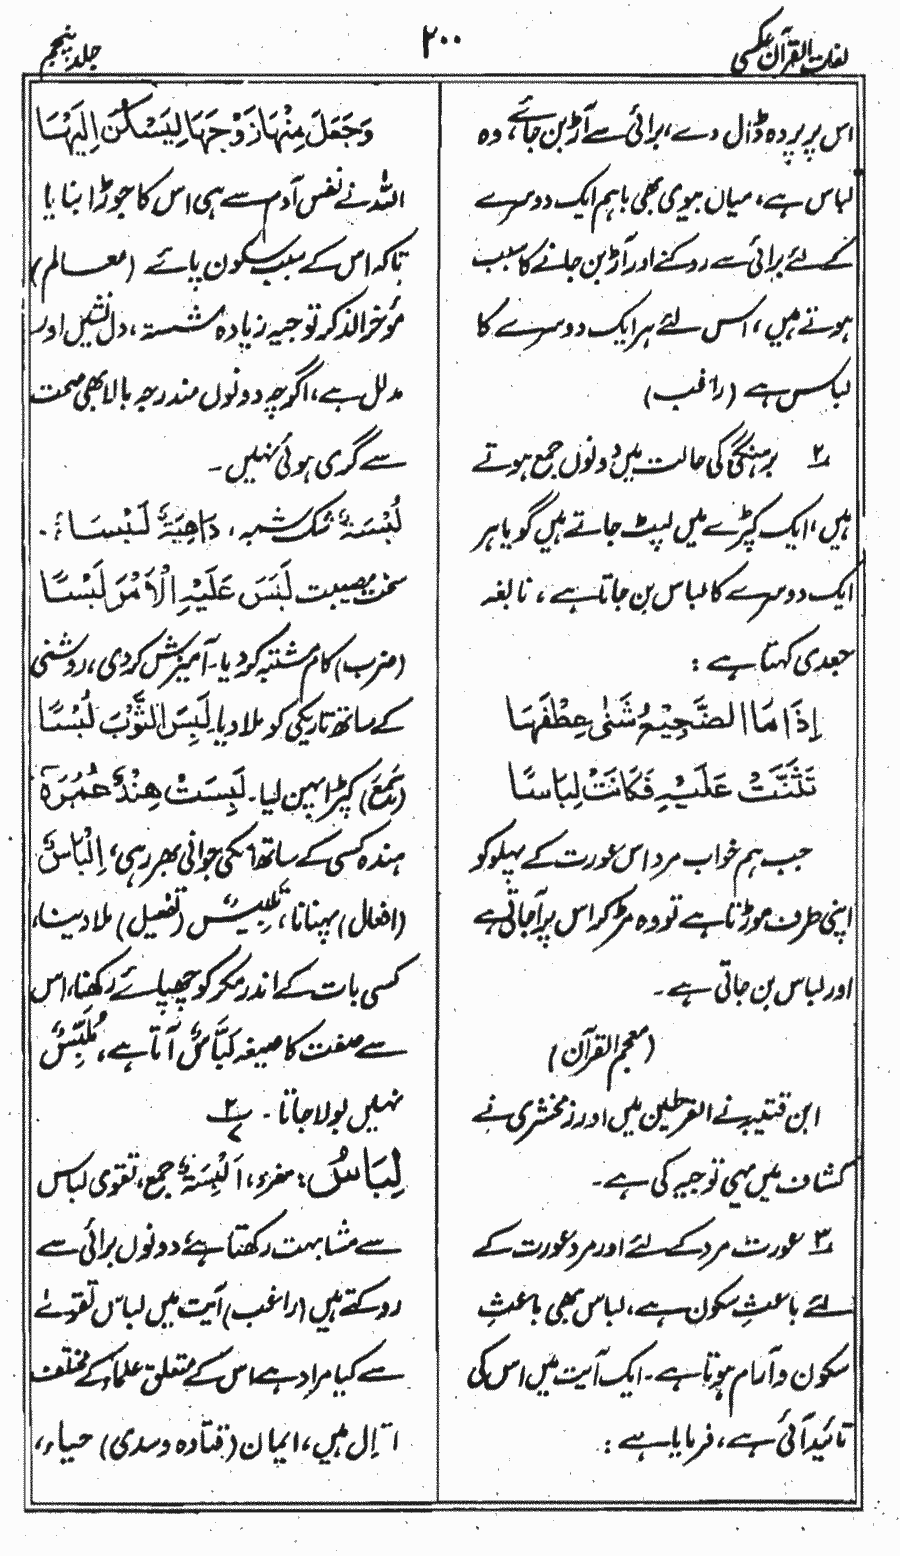 لغات القرآن عکسی
۲۰۰
جلد پنجم
اس پر پردہ ڈال دے، برائی سے آڑ بن جائے، وہ
لباس ہے، میاں بیوی بھی باہم ایک دوسرے
کے لئے برائی سے روکنے اور آڑ بن جانے کا سبب
ہوتے ہیں، اس لئے ہر ایک دوسرے کا
لباس ہے (راغب)
۲ برہنگی کی حالت میں دونوں جمع ہوتے
ہیں، ایک کپڑے میں لپٹ جاتے ہیں گویا ہر
ایک دوسرے کا لباس بن جاتا ہے، نابغہ
جعدی کہتا ہے :
اِذَا مَا الضَّجِیْعُ شَنٰی عِطْفَهَا
تَثَنَّتْ عَلَیْہِ فَکَانَتْ لِبَاسًا
جب ہم خواب مرد اس عورت کے پہلو کو
اپنی طرف موڑتا ہے تو وہ مڑ کر اس پر آجاتی ہے
اور لباس بن جاتی ہے۔
(معجم القرآن)
ابن قتیبہ نے القرطین میں اور زمخشری نے
کشاف میں یہی توجیہ کی ہے۔
۳ عورت مرد کے لئے اور مرد عورت کے
لئے باعثِ سکون ہے، لباس بھی باعثِ
سکون و آرام ہوتا ہے۔ ایک آیت میں اس کی
تائید آئی ہے، فرمایا ہے :
وَجَعَلَ مِنْهَا زَوْجَهَا لِیَسْکُنَ اِلَیْهَا
اللہ نے نفس آدم سے ہی اس کا جوڑا بنایا
تاکہ اس کے سبب سکون پائے (معالم)
مؤخر الذکر توجیہ زیادہ شستہ، دل نشیں اور
مدلل ہے، اگرچہ دونوں مندرجہ بالا بھی صحت
سے گری ہوئی نہیں۔
لُبْسَةٌ شک شبہ، دَاهِیَةٌ لَبْسَاءُ۔
سخت مصیبت لَبَسَ عَلَیْہِ الْاَمْرَ لَبْسًا
(ضرب) کام مشتبہ کر دیا۔ آمیزش کر دی، روشنی
کے ساتھ تاریکی کو ملا دیا۔ لَبِسَ الثَّوْبَ لُبْسًا
(سَمِعَ) کپڑا پہن لیا۔ لَبِسَتْ هِنْدٌ عُمُرَهٗ
ہندہ کسی کے ساتھ اسکی جوانی بھر رہی، اِلْبَاسٌ
(افعال) پہنانا، تَلْبِیْسٌ (تفعیل) ملا دینا،
کسی بات کے اندر مکر کو چھپائے رکھنا، اس
سے صفت کا صیغہ لَبَّاسٌ آتا ہے، مُلَبِّسٌ
نہیں بولا جاتا۔ ۲ے
لِبَاسُ : مفرد، اَلْبِسَةٌ جمع، تقوی لباس
سے مشابہت رکھتا ہے دونوں برائی سے
روکتے ہیں (راغب) آیت میں لباس تقوے
سے کیا مراد ہے اس کے متعلق علماء کے مختلف
اقوال ہیں، ایمان (قتادہ و سدی) حیاء،